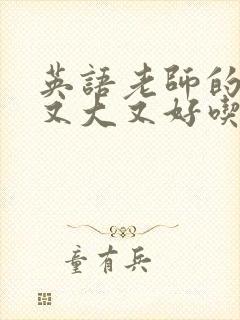 英語老師的
又大又好喫
童有兵